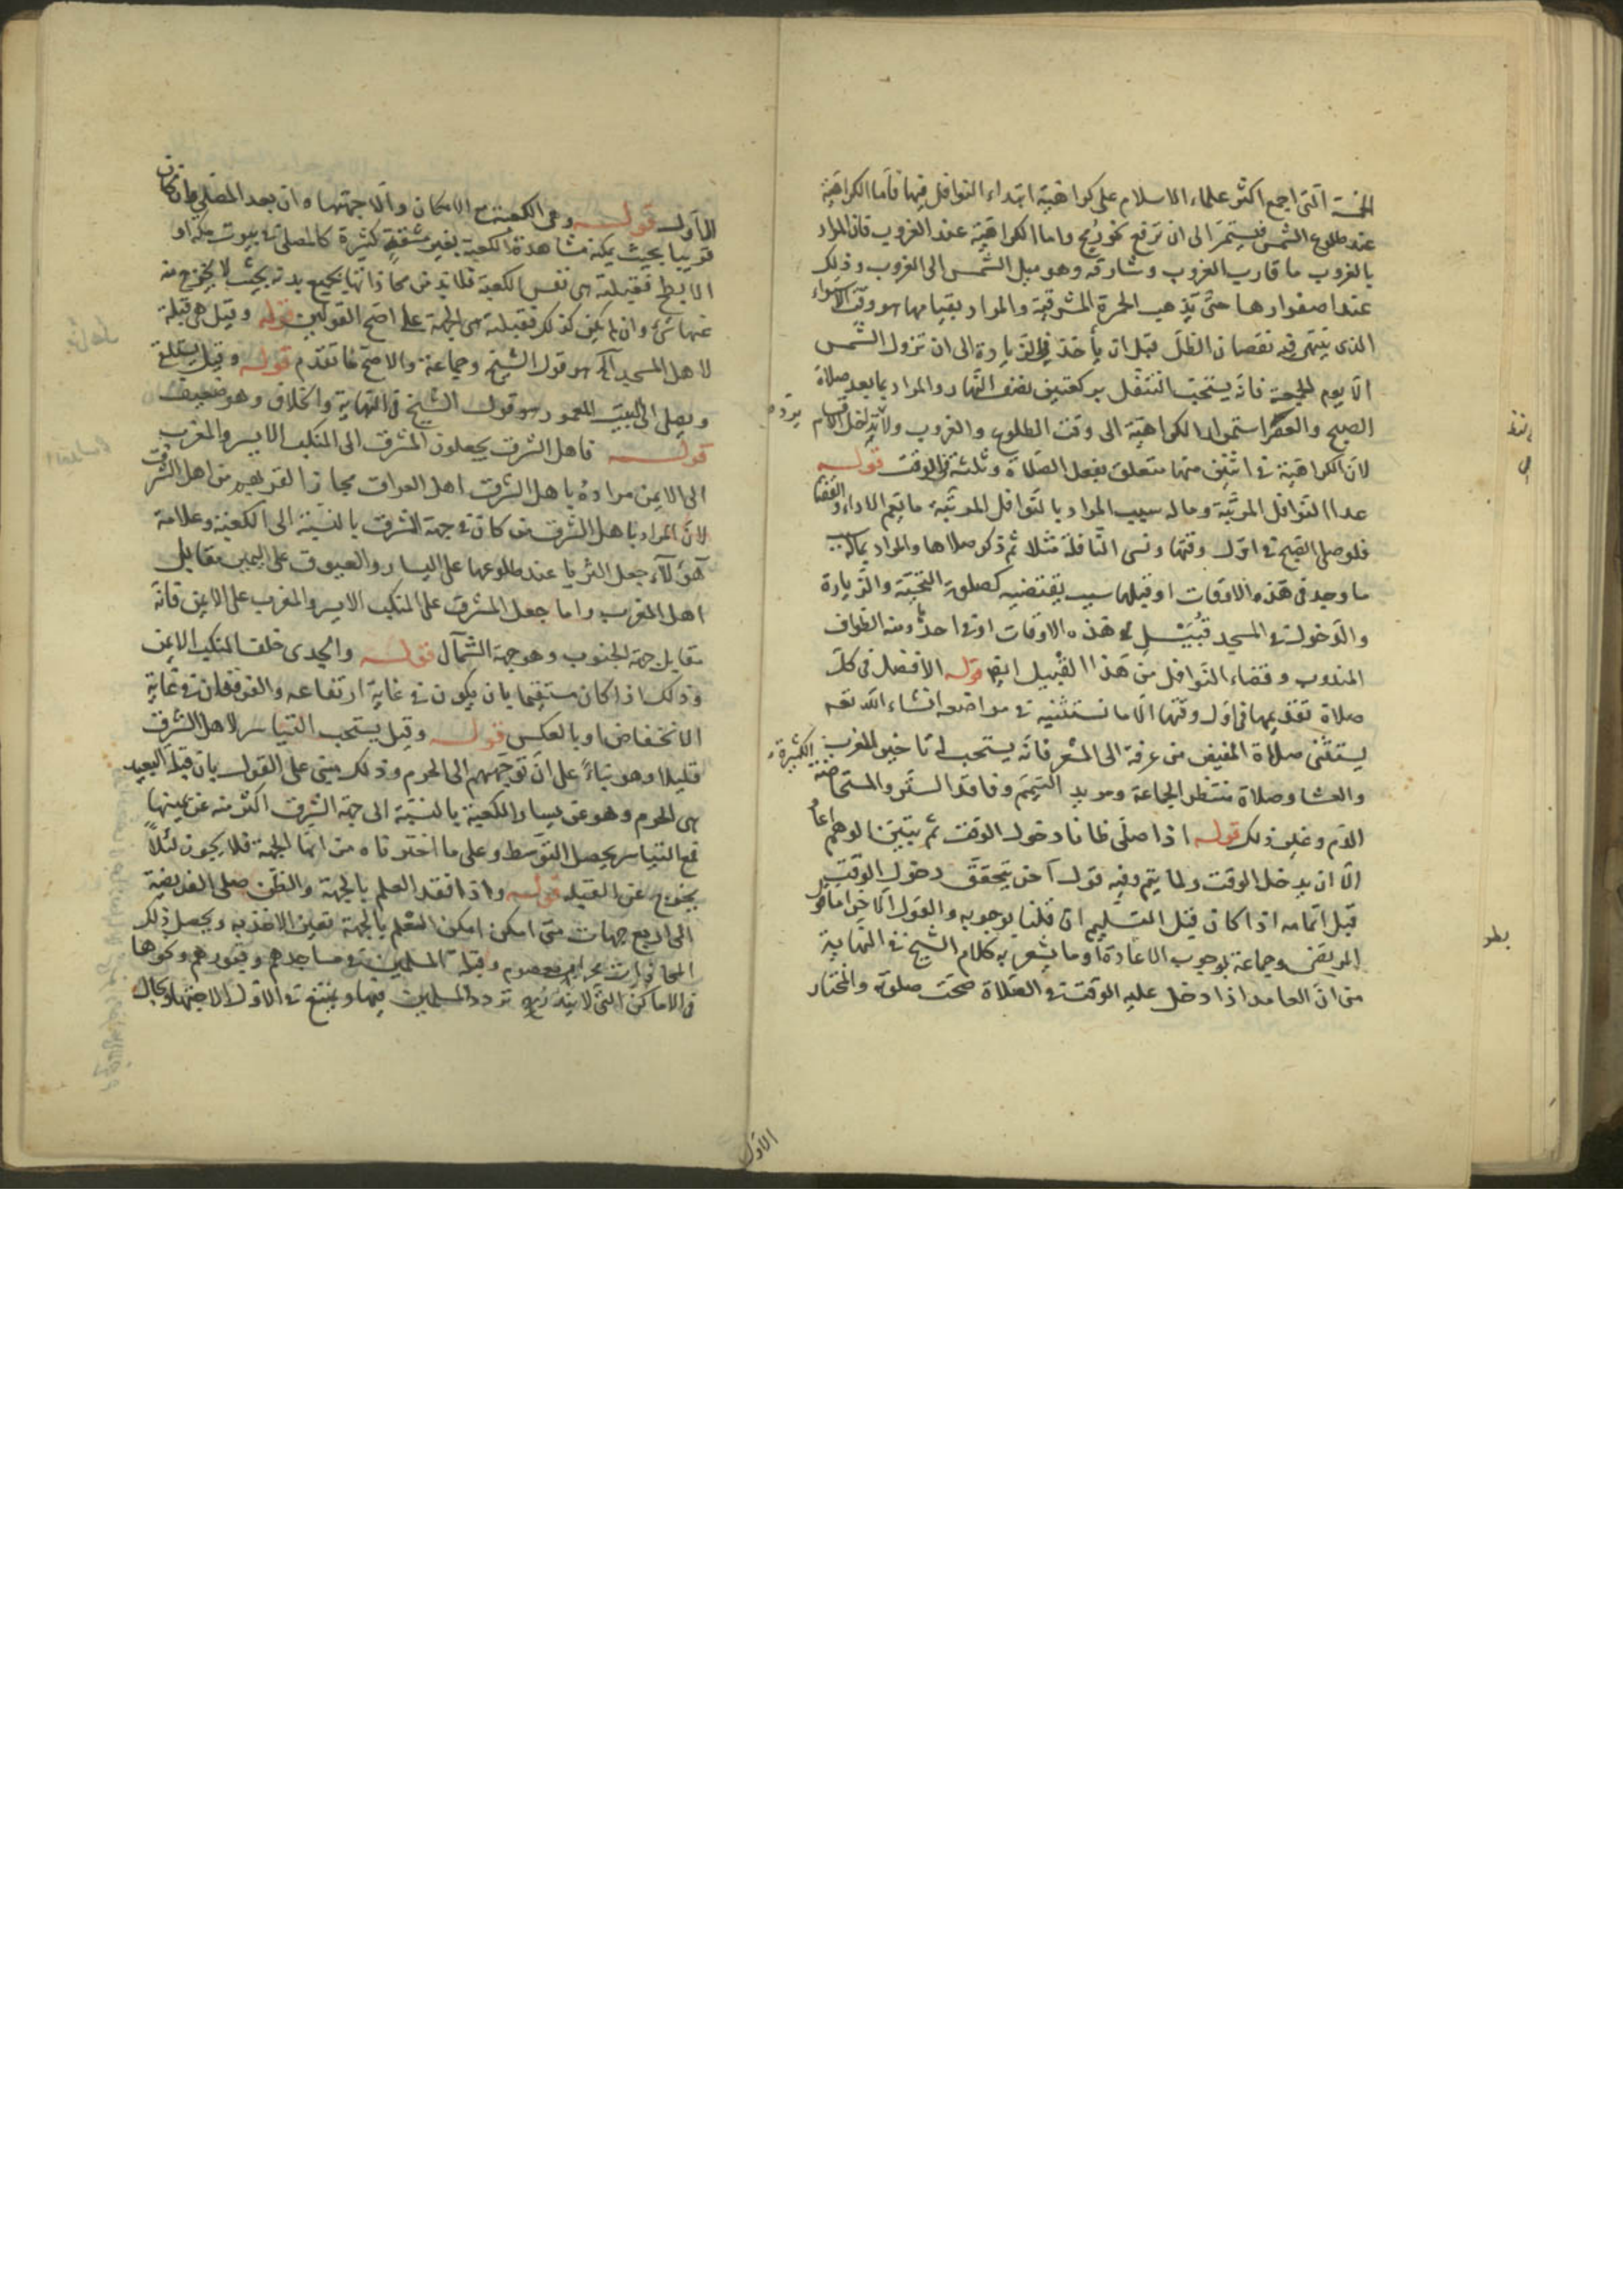 الخمسة التى اجمع اكثر علماء الاسلام على كراهية ابتداء النوافل فيها فاما الكراهية
عند طلوع الشمس فيستمر الى ان ترفع نحو رمح واما الكراهية عند الغروب فان المراد
بالغروب ما قارب الغروب وشارفه وهو ميل الشمس الى الغروب وذلك
عند اصفرارها حتى تذهب الحمرة المشرقية والمراد بقيامها هو وقت الاستواء
الذى ينتهى فيه نقصان الظل قبل ان يأخذ فى الزيادة الى ان تزول الشمس
الا يوم الجمعة فانه يستحب التنفل بركعتين نصف النهار والمراد بما بعد صلاة
الصبح والعصر استمرار الكراهية الى وقت الطلوع والغروب ولا تداخل الاقسام
لان الكراهية فى اثنين منها متعلق بفعل الصلاة وثلثة فى الوقت قوله
عدا النوافل المرتبة وما له سبب المراد بالنوافل المرتبة ما يعم الاداء والقضا
فلو صلى الصبح فى اول وقتها ونسى النافلة مثلا ثم ذكر صلاها والمراد بماله سبب
ما وجد فى هذه الاوقات او قبلها سبب يقتضيه كصلوة التحية والزيارة
والدخول فى المسجد قبيل هذه الاوقات او فى احد ومنه الطواف
المندوب وقضاء النوافل من هذا القبيل ايض قوله الافضل فى كل
صلاة تقديمها فى اول وقتها الا ما نستثنيه فى مواضعه انشاء الله تعه
يستثنى صلاة المفيض من عرفة الى المشعر فانه يستحب له تاخير المغرب
والعشا وصلاة منتظر الجماعة ومريد التيمم وفاقد الستر والمستحاضة الكثيرة
الدم وغير ذلك قوله اذا صلى ظانا دخول الوقت ثم يتبين الوهم اعاد
الا ان يدخل الوقت ولما يتم وفيه قول آخر يتحقق دخول الوقت
قبل اتمامه اذا كان قبل التسليم ان قلنا بوجوبه والقول الآخر اما قول
المرتضى وجماعة بوجوب الاعادة او ما يشعر به كلام الشيخ فى النهاية
من ان العامد اذا دخل عليه الوقت فى الصلاة صحت صلوته والمختار
الاول
الاول قوله وهى الكعبة مع الامكان والا جهتها وان بعد المصلى وان كان
قريبا بحيث يمكنه مشاهدة الكعبة بغير مشقة كثيرة كالمصلى فى بيوت مكة او
الابطح فقبلته هى نفس الكعبة فلابد من محاذاتها بجميع بدنه بحيث لا يخرج منه
عنها شىء وان لم يكن كذلك فقبلته هى الجهة على اصح القولين قوله وقيل هى قبلة
لاهل المسجد آه هو قول الشيخ وجماعة والاصح ما تقدم قوله وقيل يستلقى
ويصلى الى البيت المعمور هو قول الشيخ فى النهاية والخلاف وهو ضعيف
قوله فاهل الشرق يجعلون المشرق الى المنكب الايسر والمغرب
الى الايمن مراده باهل الشرق اهل العراق مجازا لقربهم من اهل الشرق
لان المراد باهل الشرق من كان فى جهة الشرق بالنسبة الى الكعبة وعلامة
هؤلآء جعل الثريا عند طلوعها على اليسار والعيوق على اليمين مقابل
اهل المغرب واما جعل المشرق على المنكب الايسر والمغرب على الايمن فانه
مقابل جهة الجنوب وهو جهة الشمال قوله والجدى خلف المنكب الايمن
وذلك اذا كان مستقيما بان يكون فى غاية ارتفاعه والفرقدان فى غاية
الانخفاض او بالعكس قوله وقيل يستحب التياسر لاهل الشرق
قليلا وهو بناءً على ان توجههم الى الحرم وذلك مبنى على القول بان قبلة البعيد
هى الحرم وهو عن يسار الكعبة بالنسبة الى جهة الشرق اكثر منه عن يمينها
فمع التياسر يحصل التوسط وعلى ما اخترناه من انها الجهة فلا يكون لئلا
يخرج عن القبلة قوله واذا فقد العلم بالجهة والظن صلى الفريضة
الى اربع جهات متى امكن امكن العلم بالجهة تعين الاخذ به ويحصل ذلك
بمحراب معصوم وقبلة المسلمين فى مساجدهم وقبورهم ونحوها
فى الاماكن التى لا يندر تردد المسلمين فيها ويمتنع فى الاول الاجتهاد بحال